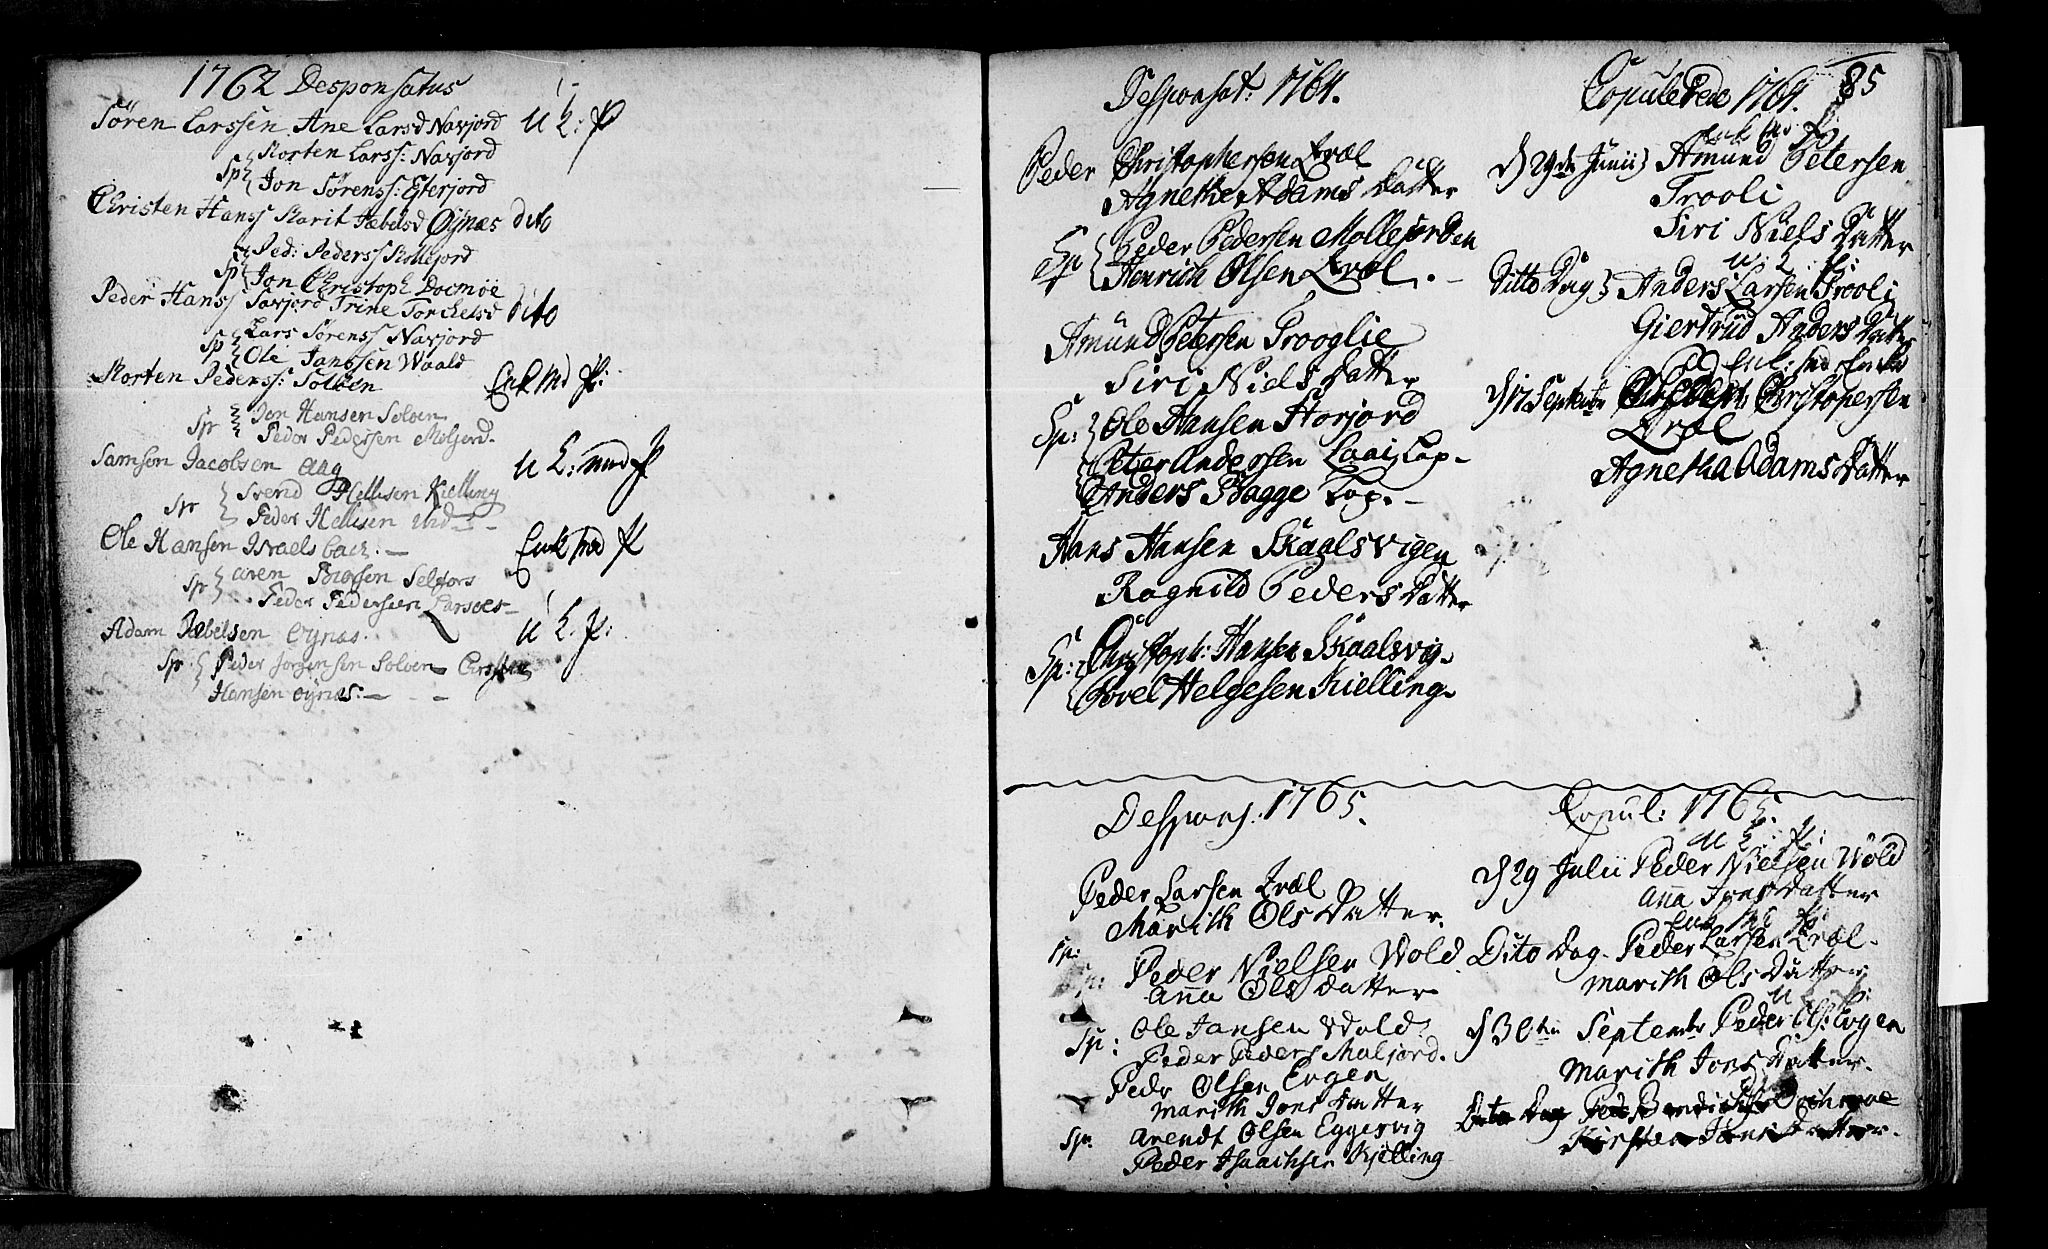 1762 Desponsatus
Sören Larssen Ane Larsd Navjord u k: P
Sp { Morten Larss: Navjord
Jon Sörenss: Efterjord
Christen Hanss Marit Jæbelsd Oÿnæs dito
Sp { Ped: Pederss Mollejord
Jon Christoph Docmöe
Peder Hanss Saxjord Trine Torchelsd dito
Sp { Lars Sörenss Navjord
Ole Janssen Waald
Morten Pederss: Solöen Enk md P:
Spr { Jon Hansen Solöen
Peder Pedersen Moljord.
Samsen Jacobsen aag u k: med P
Spr { Svend Hellesen Kielling
Peder Hellesen ibid
Ole Hansen Israelsbach: Enk med P
Spr { aren Selfors
Peder Pedersen Larsoes
Adam Jæbelsen Oÿnæs. u k. P:
Spr { Peder Jorgensen Solöen Christen
Hansen oÿnæs:
85
Desponsat: 1764.
Peder Christophersen Evæl
Agnethe Adams Datter
Sp { Peder Pedersen Mollejorden
Henrich Olsen Evæl.
Amund Petersen Trooglie
Siri Niels Datter
Sp: { Ole Hansen Storjord
Peter Andersen Laai, Lap.
Anders Bagge Lap.
Hans Hansen Skaalsvigen
Ragnild Peders Datter
Sp: { Christoph: Hansen Skaalsvig.
Povel Helgesen Kielling.
Copulerede 1764.
d 29de Junii Amund Petersen
Trooli
Siri Niels Datter
u: k: P:
Ditto Dag Anders Larsen Trooli
Giertrud Anders Datter
d 17 Septembr Christopersen
Evæl
Agnetha Adams Datter
Despons. 1765.
Peder Larsen Evæl
Marith Ols Datter
Sp:
Peder Nielsen Wold
Anna Ols Datter
Sp: Ole Jansen Wold
Peder Peders Moljord.
Pedr Olsen Evgen
Marith Jons Datter
Sp: Arendt Olsen Eggesvig
Peder Isaachsen Kjelling
Copul: 1765.
u k: P:
d 29 Julii Peder Nielsen Wold
Anna Jons Datter
Enk md P:
Dito Dag. Peder Larsen Evæl.
Marith Ols Datter
u k P:
d 30ten Septembr Peder Ols: Evgen
Marith Jons Datter.
Dito Dag Peds
Kirsten Jons Datter.